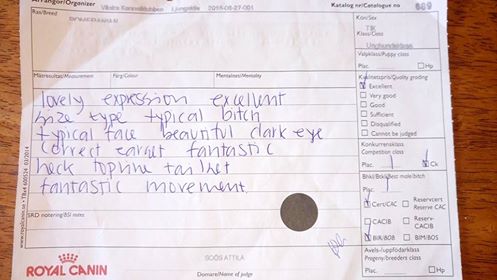 Arrangör/Organizer
Västra Kennelklubben Ljungskile 2016-08-27-001
Katalog nr/Catalogue no 689
Ras/Breed
Kön/Sex
TIK
Klass/Class
Unghundsklass
Valpklass/Puppy class
Plac. Hp
Mätresultat/Measurement Färg/Colour Mentalitet/Mentality
Kvalitetspris/Quality grading
Excellent
Very good
Good
Sufficient
Disqualified
Cannot be judged
lovely expression excellent
size type typical bitch
typical face beautiful dark eye
correct earset fantastic
neck topline tailset
fantastic movement
Konkurrensklass
Competition class
Plac. Ck
Plac.
Cert/CAC
Reservcert
Reserve CAC
CACIB
Reserv-
CACIB
BIR/BOB
BIM/BOS
SRD notering/BSI notes
Avels-/uppfödarklass
Progeny/breeders class
ROYAL CANIN
SOÓS ATTILA
Domare/Name of judge
www.royalcanin.se • TB4 600524 03/2014